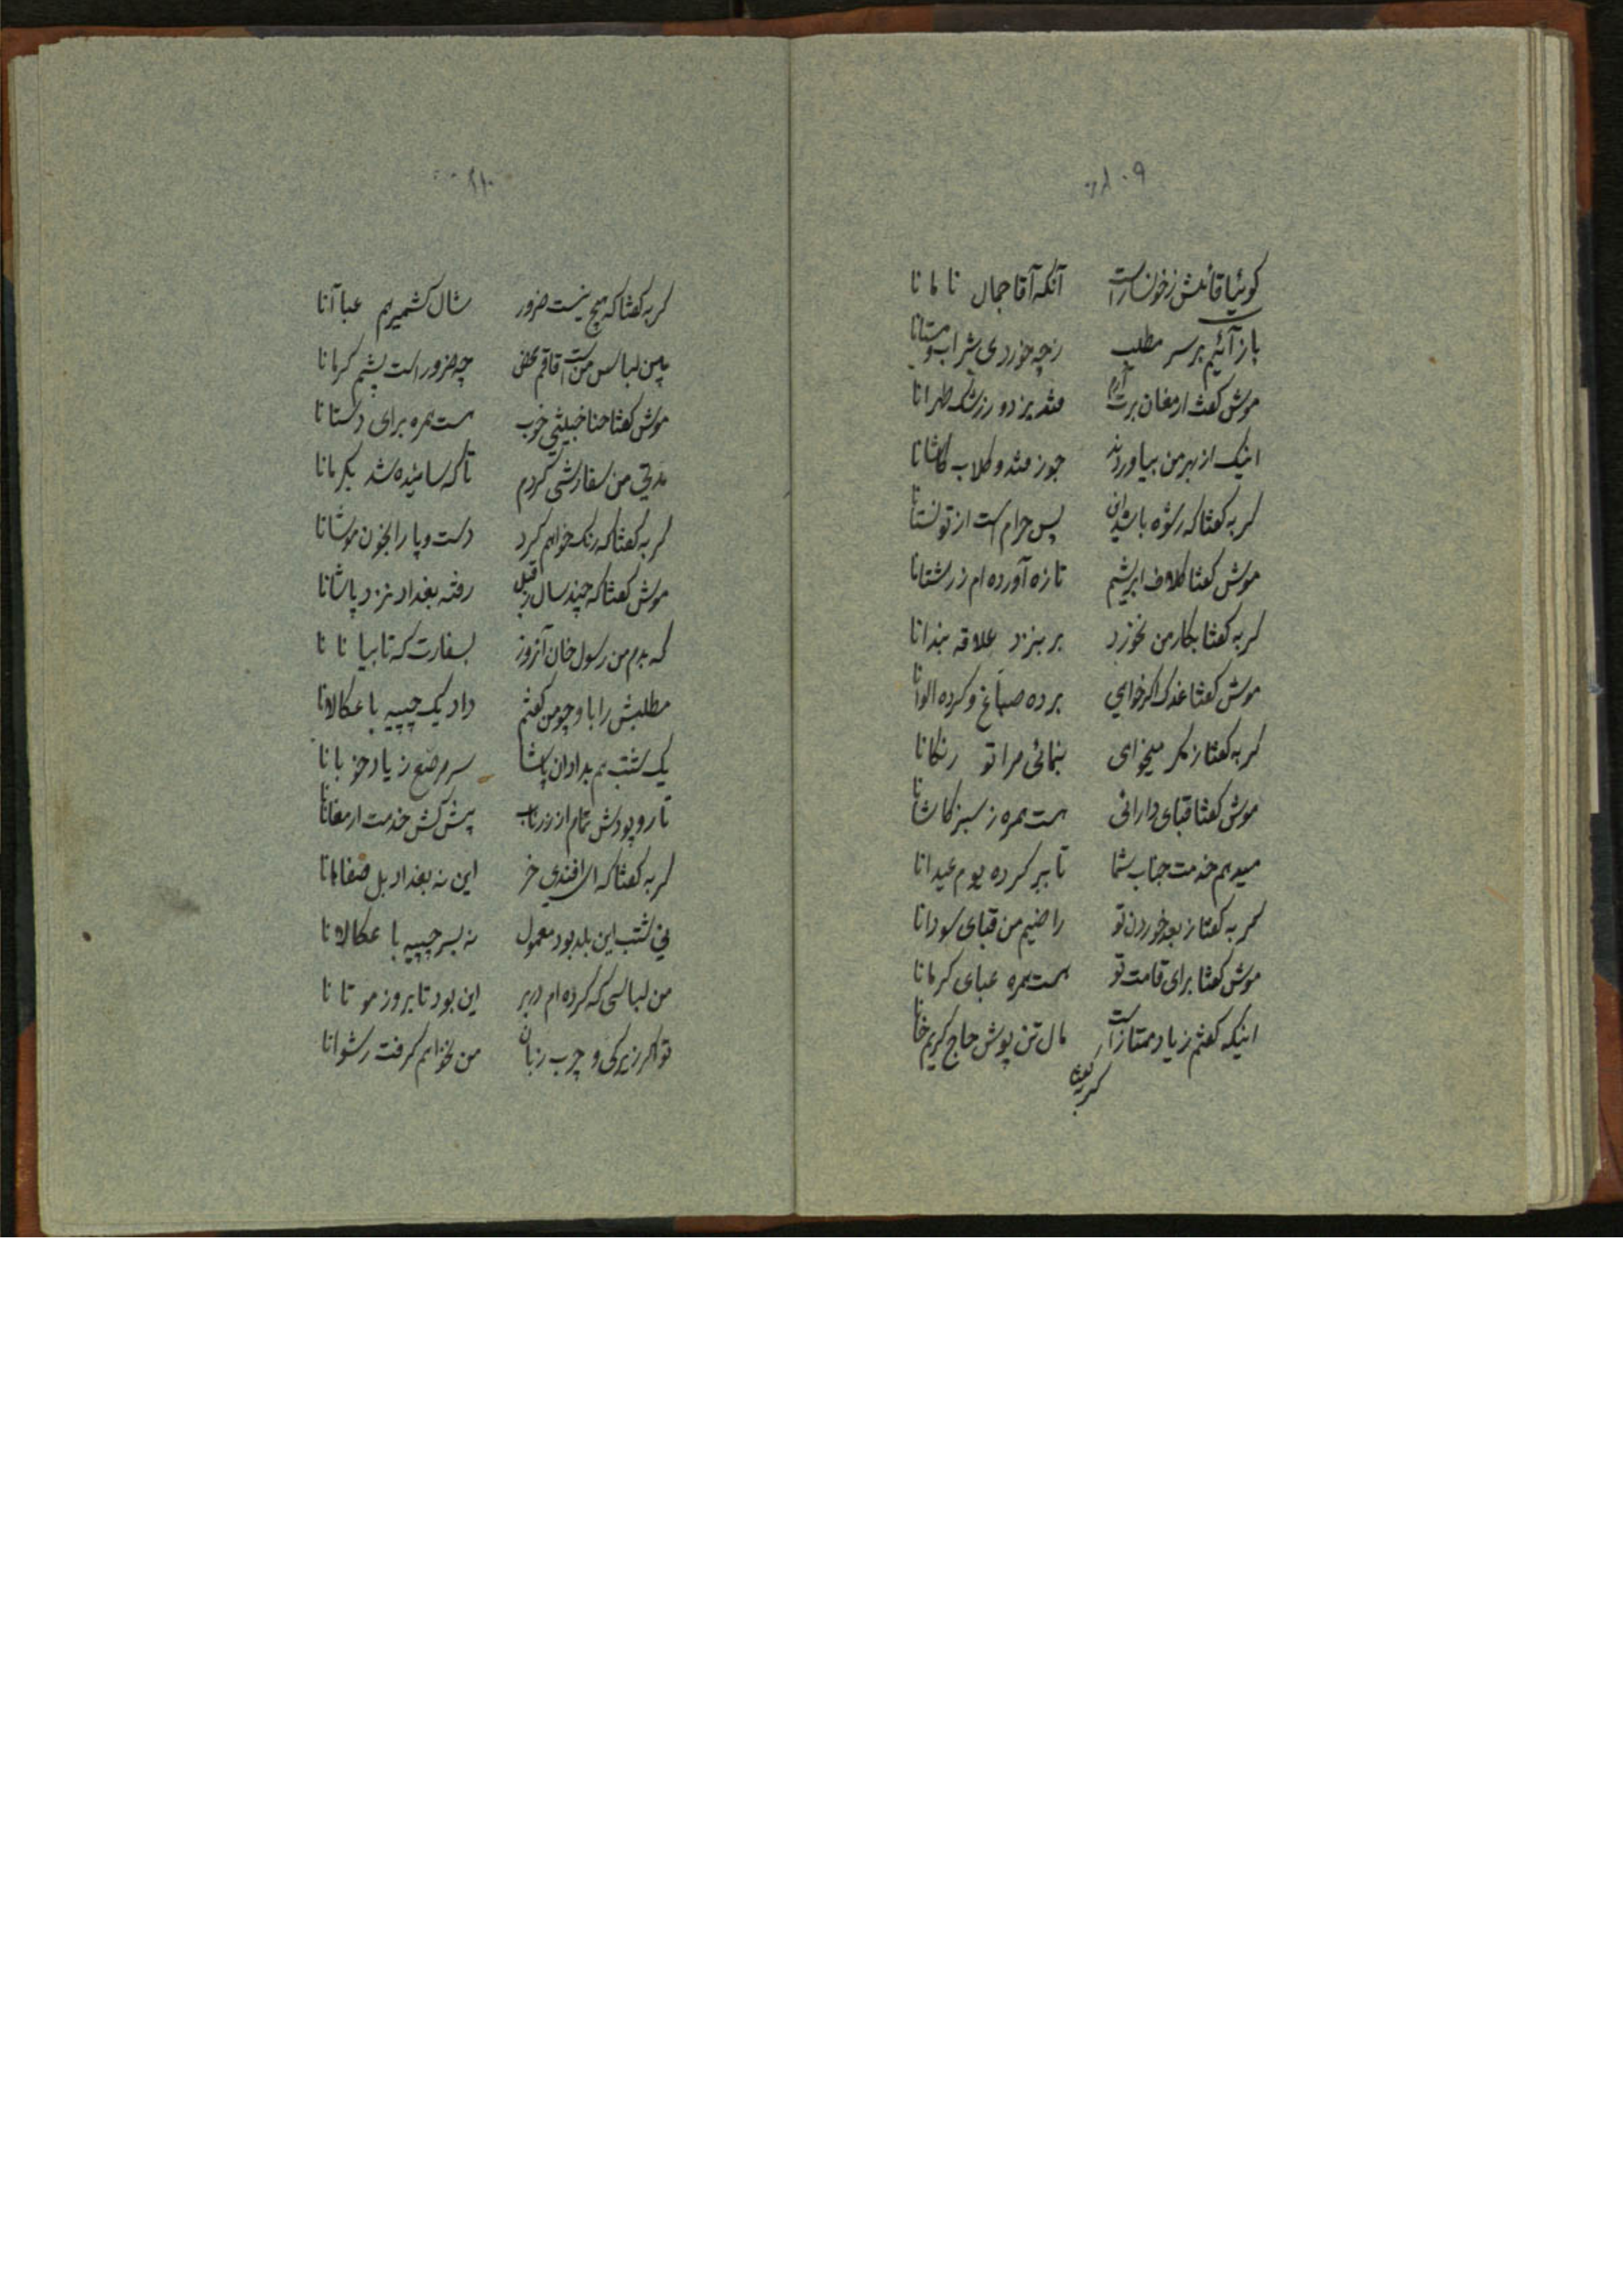 گوئیا قائلش ز خونسار است آنکه آقا جمال نامانا
باز آئیم بر سر مطلب
موش گفت ارمغان برت آرم قند یزد و زرشک طهرانا
اینک از بهر من بیاوردند جوز قند و گلاب کاشانا
گربه گفتا که رشوه باشد این پس حرام است از تو نستانا
موش گفتا کلاف ابریشم تازه آورده‌ام ز رشتانا
گربه گفتا بکار من نخورد بر بنزد علاقه بندانا
موش گفتا غدک اگر خواهی برده صباغ و کرده الوانا
گربه گفتا ز مکر میخواهی بنمائی مرا تو رنگانا
موش گفتا قبای دارائی هست همره ز سبز کاشانا
میدهم خدمت جناب شما تا ببر کرده یوم عیدانا
گربه گفتا ز بعد خوردن تو راضیم من قبای سودانا
موش گفتا برای قامت تو هست همره عبای کرمانا
اینکه گفتم زیاد ممتاز است مال تن پوش حاج کریم خانا
گربه گفتا
گربه گفتا که هیچ نیست ضرور شال کشمیریم عبا آنا
باین لباس من است قاقم محض چه ضرور است پشم کرمانا
موش گفتا حنا خبیثی خوب هست همره برای دستانا
مدتی من سفارشی کردم تا که سائیده شد بکرمانا
گربه گفتا که رنگ خواهم کرد دست و پا را بخون موشانا
موش گفتا که چند سال ز قبل رفته بغداد نزد پاشانا
که بدم من رسول خان آنروز بسفارت که تا بیانانا
مطلبش را باو چو من گفتم داد یک چپیه با عکالانا
یک شب هم بداد آن پاشا سر مرصع زیاد خوبانا
تار و پودش تمام از زر ناب پیش کش خدمت ارمغانا
گربه گفتا که ای افندی خر این نه بغداد بل صفاهانا
نی شب این بلد بود معمول نه بسر چپیه با عکالانا
من لباسی که کرده‌ام در بر این بود تا بروز موتانا
تو اگر زیرکی و چرب زبان من نخواهم گرفت رشوانا